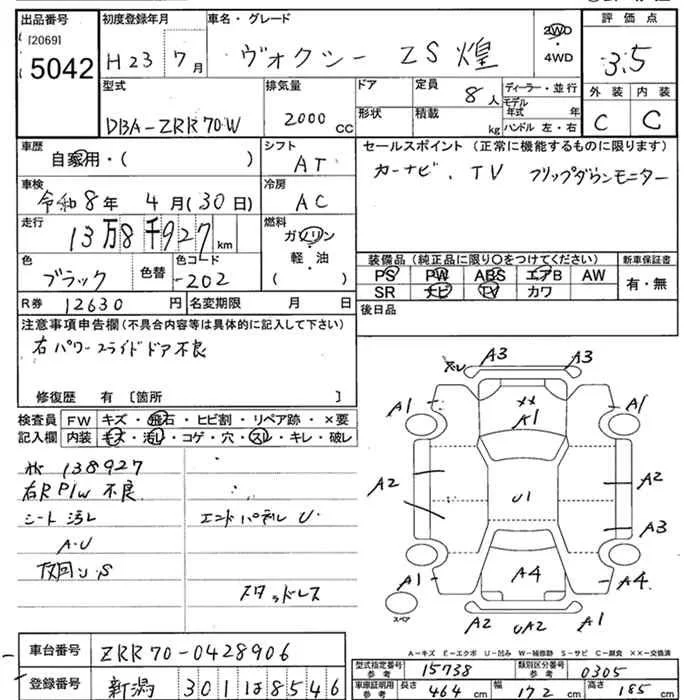 出品番号 初度登録年月 車名・グレード 2WD ・ 4WD 評価点
[2069] 5042 H23 7月 ヴォクシー ZS煌 3.5
型式 排気量 ドア 定員 8人 ディーラー・並行 外装 内装
DBA-ZRR70W 2000cc 形状 積載 kg モデル年式 年 ハンドル 左・右 C C
車歴 自家用・( ) シフト AT セールスポイント (正常に機能するものに限ります)
車検 令和8年 4月(30日) 冷房 AC カーナビ、TV フリップダウンモニター
走行 13万8千927km 燃料 ガソリン・軽・油 ( )
色 ブラック 色替 色コード -202 装備品 (純正品に限り○をつけてください) 新車保証書
PS PW ABS エアB AW 有・無
SR ナビ TV カワ
R券 12630円 名変期限 月 日 後日品
注意事項申告欄 (不具合内容等は具体的に記入して下さい)
右パワースライドドア不良
修復歴 有 [箇所 ]
検査員記入欄 FW キズ・飛石・ヒビ割・リペア跡・×要
内装 キズ・汚レ・コゲ・穴・スレ・キレ・破レ
138927
右R P/W 不良
シート汚レ エンドパネル U
A・U
スタッドレス
A3 A3
A1 ×× A1 A1
A2 U1 A2
A3
A1 A4 A4
スペア A2 UA2 A1
A-キズ E-エクボ U-凹み W-補修跡 S-サビ C-腐食 ××-交換済
車台番号 ZRR70-0428906
登録番号 新潟 301 は8546
型式指定番号 参考 15738 類別区分番号 参考 0305
車庫証明用 参考 長さ 464cm 幅 172cm 高さ 185cm